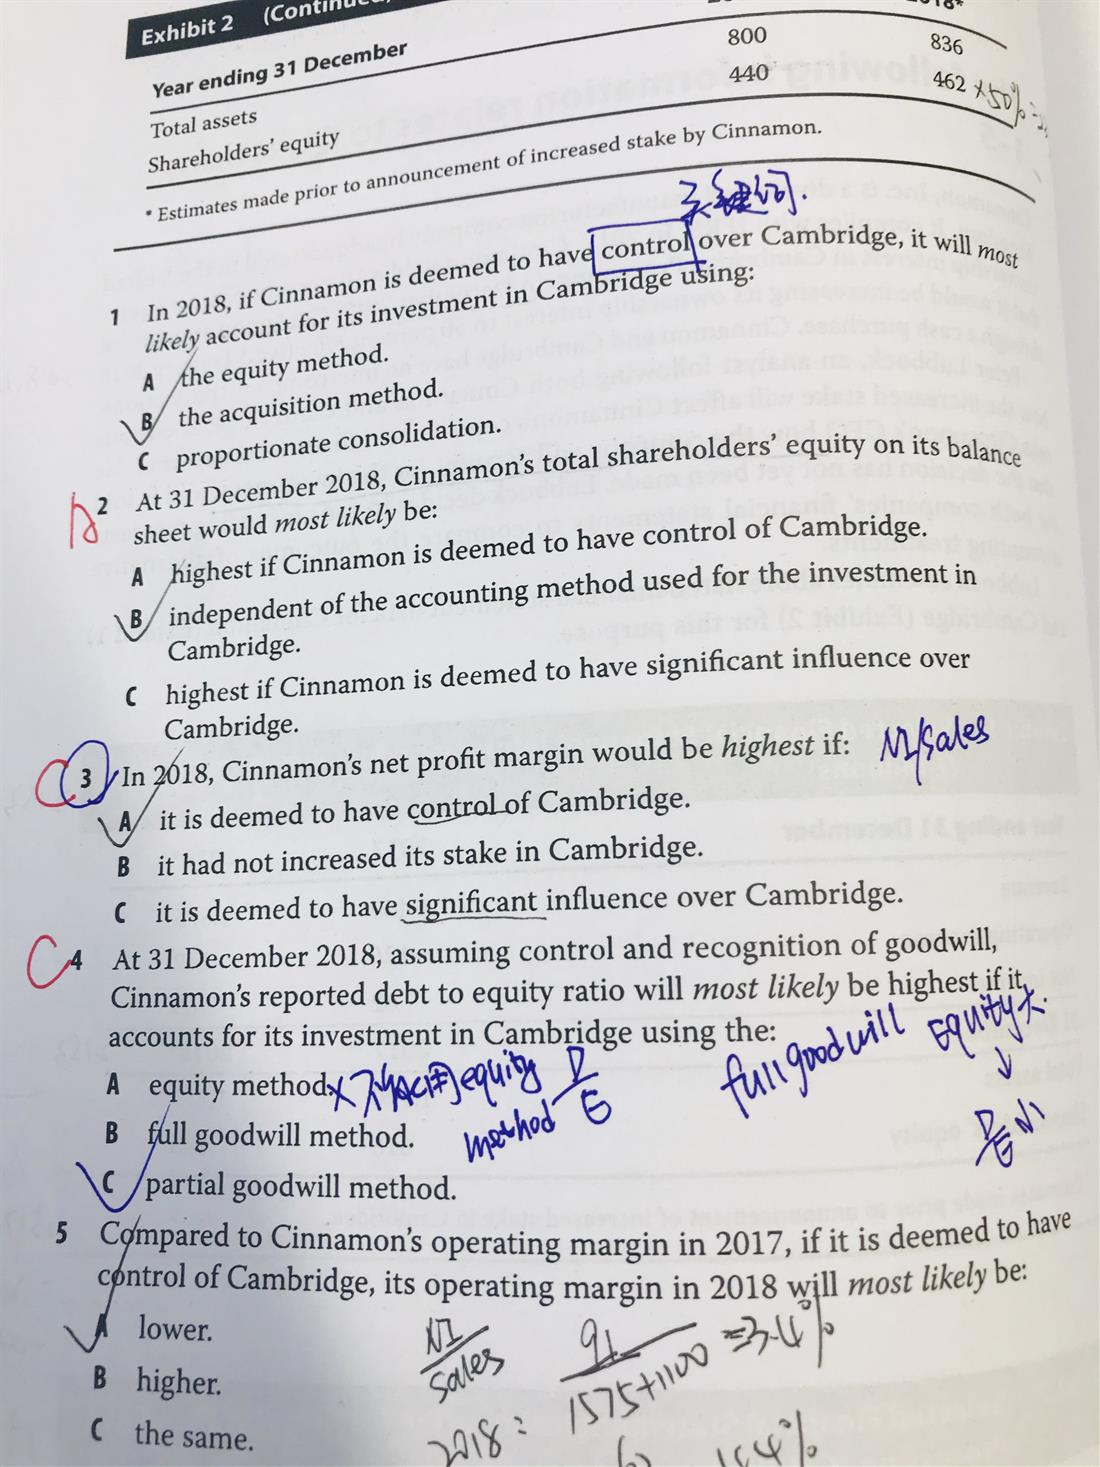 Exhibit 2 (Continued)
Year ending 31 December
Total assets 800 836
Shareholders' equity 440 462 ×50%
* Estimates made prior to announcement of increased stake by Cinnamon.
关键词.
1 In 2018, if Cinnamon is deemed to have control over Cambridge, it will most
likely account for its investment in Cambridge using:
A the equity method.
B the acquisition method.
C proportionate consolidation.
2 At 31 December 2018, Cinnamon's total shareholders' equity on its balance
sheet would most likely be:
A highest if Cinnamon is deemed to have control of Cambridge.
B independent of the accounting method used for the investment in
Cambridge.
C highest if Cinnamon is deemed to have significant influence over
Cambridge.
3 In 2018, Cinnamon's net profit margin would be highest if: NI/sales
A it is deemed to have control of Cambridge.
B it had not increased its stake in Cambridge.
C it is deemed to have significant influence over Cambridge.
C 4 At 31 December 2018, assuming control and recognition of goodwill,
Cinnamon's reported debt to equity ratio will most likely be highest if it
accounts for its investment in Cambridge using the:
full goodwill Equity大.
A equity method. equity
method D/E
B full goodwill method.
D/E 小
C partial goodwill method.
5 Compared to Cinnamon's operating margin in 2017, if it is deemed to have
control of Cambridge, its operating margin in 2018 will most likely be:
A lower.
B higher.
C the same.
NI/sales
2018: 91/1575+1100 =3.4%